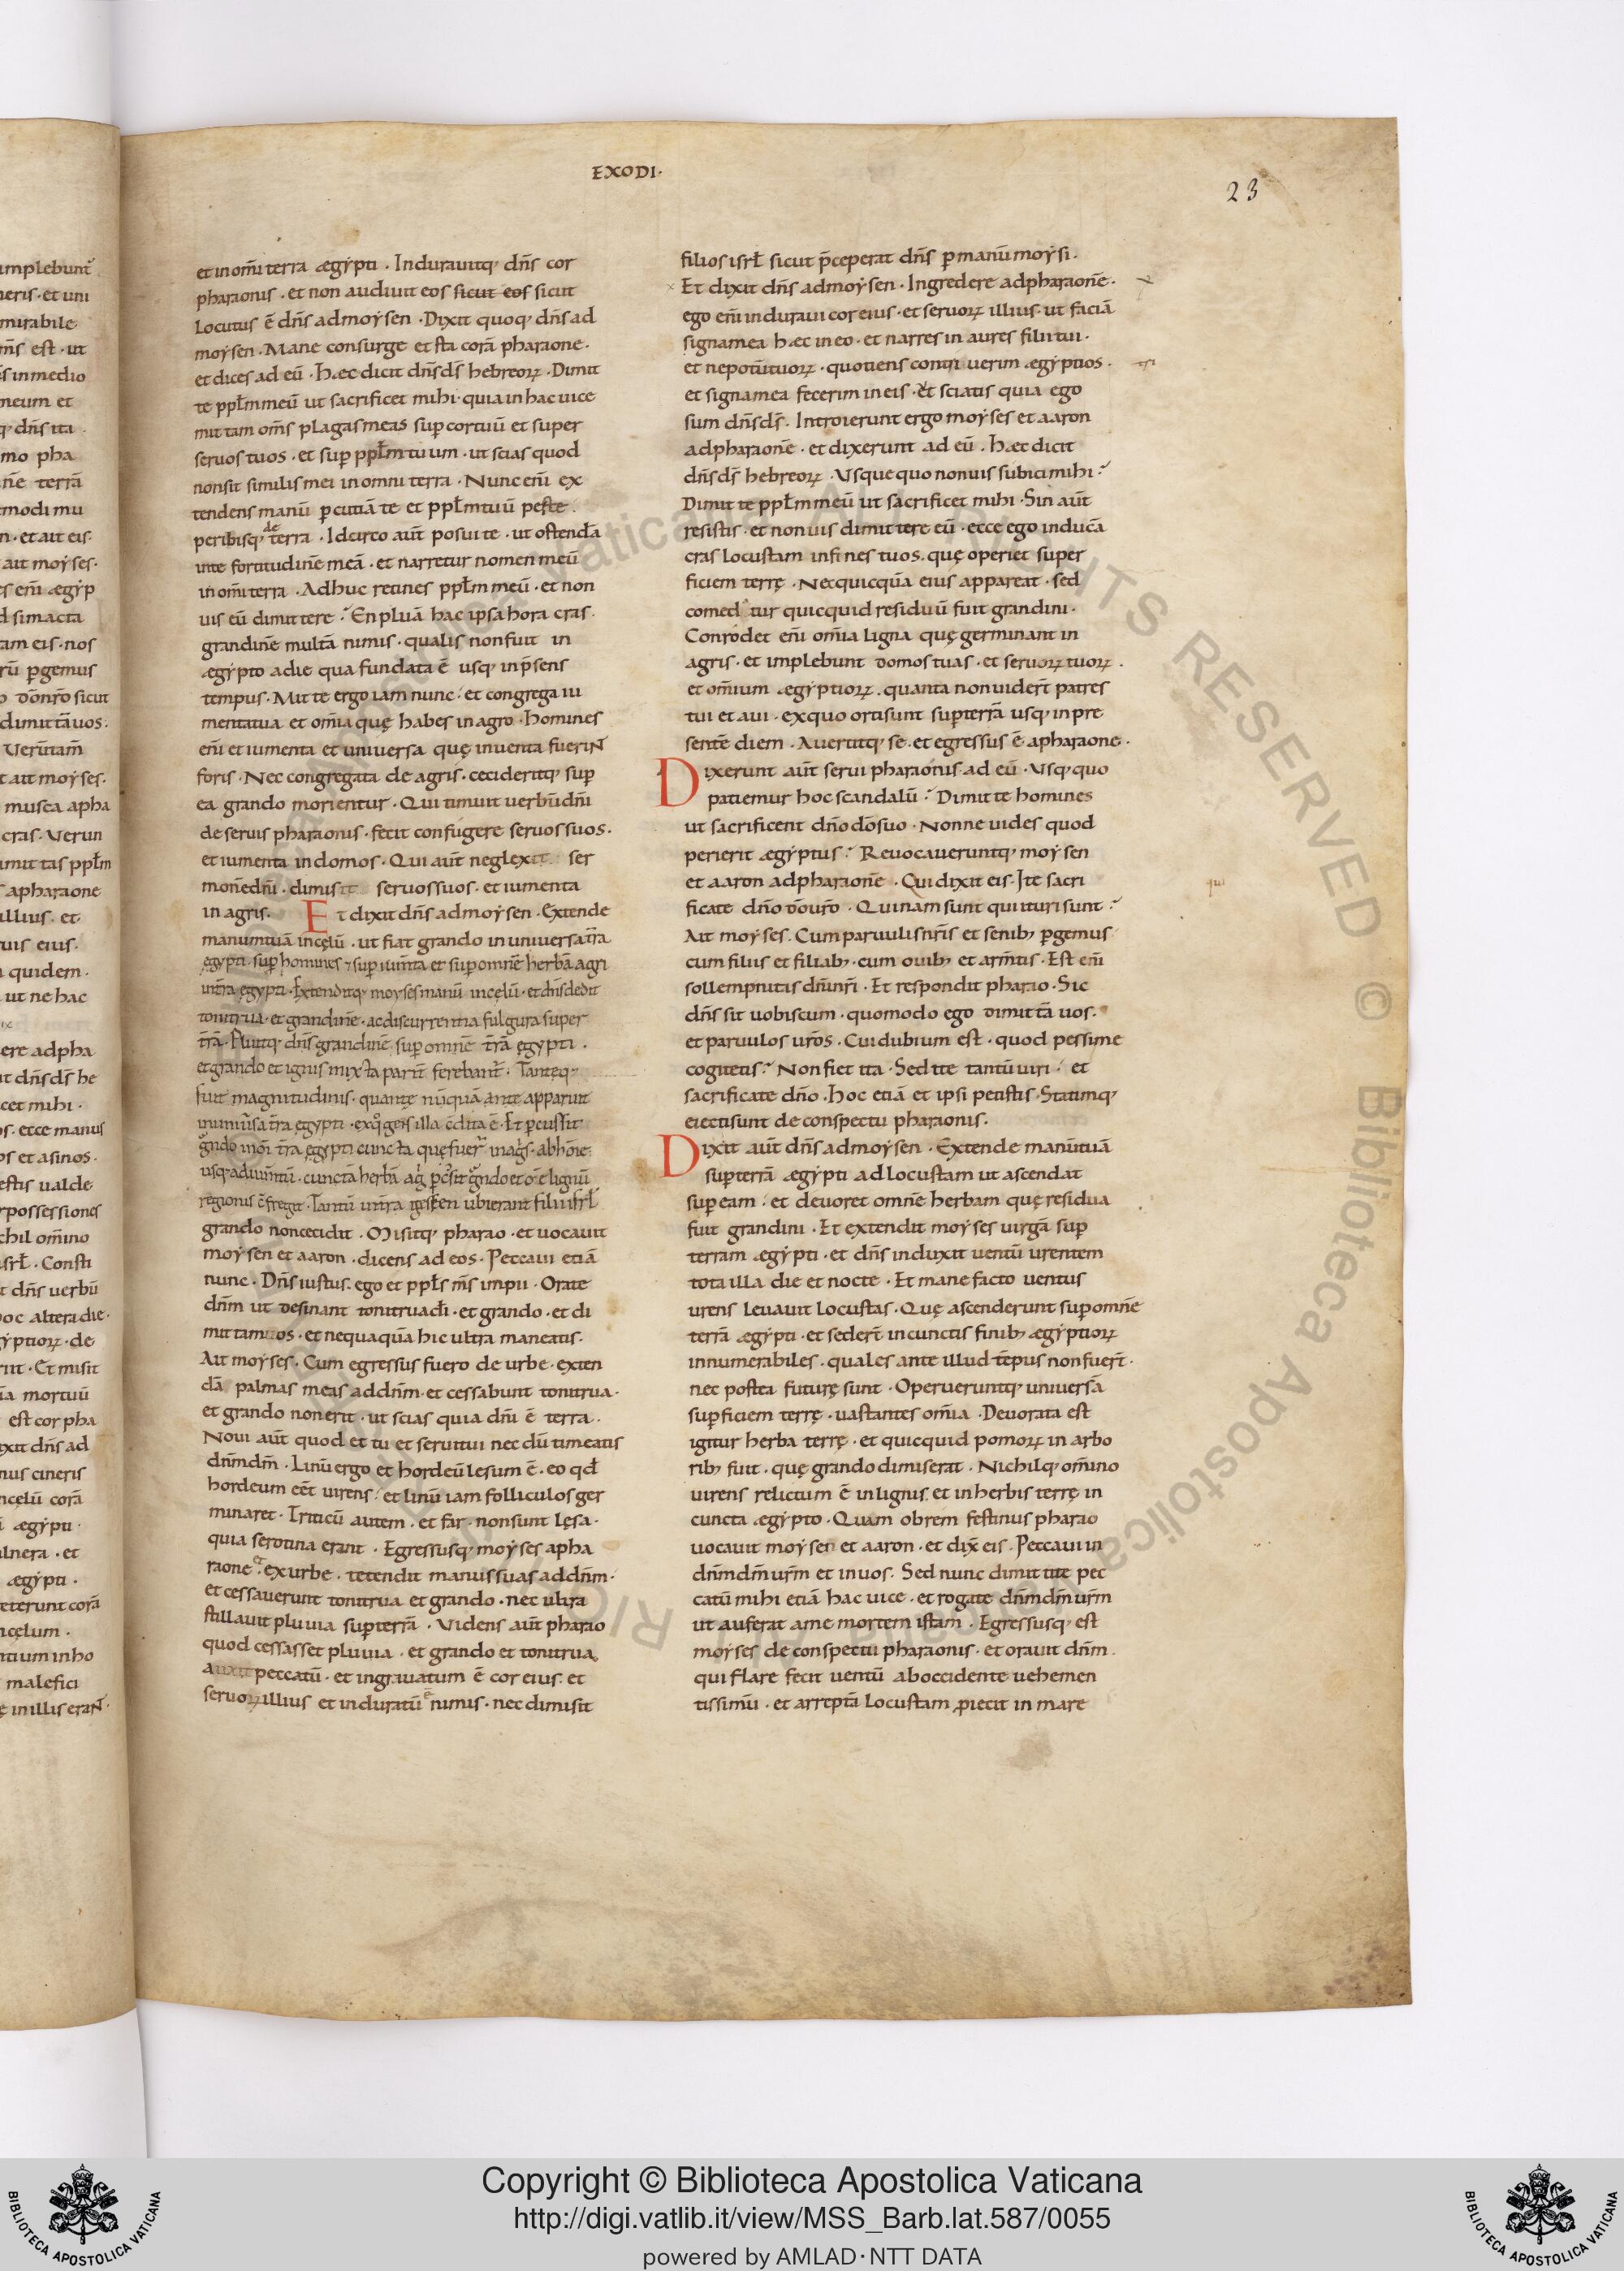 EXODI·
23
et in om̄i terra ægypti · Indurauitq; dn̄s cor
pharaonis · et non audiuit eos sicut eos sicut
locutus ē dn̄s ad moysen · Dixit quoq; dn̄s ad
moysen · Mane consurge et sta corā pharaone ·
et dices ad eū · Hæc dicit dn̄s ds̄ hebreoꝝ · Dimit
te pplm̄ meū ut sacrificet mihi · quia in hac uice
mittam om̄s plagas meas sup̄ cor tuū et super
seruos tuos · et sup̄ pplm̄ tuum · ut scias quod
non sit similis mei in omni terra · Nunc enī ex
tendens manū p̄cutiā te et pplm̄ tuū peste ·
peribisq; de terra · Idcirco aūt posui te · ut ostendā
in te fortitudinē meā · et narretur nomen meū
in om̄i terra · Adhuc retines pplm̄ meū · et non
uis eū dimittere? En pluā hac ipsa hora cras ·
grandinē multā nimis · qualis non fuit in
ægypto a die qua fundata ē usq; in p̄sens
tempus · Mitte ergo iam nunc · et congrega iu
menta tua et om̄ia quę habes in agro · Homines
enī et iumenta et uniuersa quę inuenta fuerint
foris · Nec congregata de agris · cecideritq; sup̄
ea grando morientur · Qui timuit uerbū dn̄i
de seruis pharaonis · fecit confugere seruos suos ·
et iumenta in domos · Qui aūt neglexit ser
monē dn̄i · dimisit seruos suos · et iumenta
in agris · Et dixit dn̄s ad moysen · Extende
manum tuā in cęlū · ut fiat grando in uniuersa tr̄a
ęgypti · sup̄ homines ⁊ sup̄ ium̄ta et sup̄ omnē herbā agri
in tr̄a ęgypti · Extenditq; moyses manū in cęlū · et dn̄s dedit
tonitrua · et grandinē · ac discurrentia fulgura super
tr̄ā · Pluitq; dn̄s grandinē sup̄ omnē tr̄ā ęgypti ·
et grando et ignis mixta parit̄ ferebant̄ · Tantęq;
fuit magnitudinis · quantę nūquā ante apparuit
in uniūsa tr̄a ęgypti · ex quo gens illa c̄dita ē · Et p̄cussit
grando in om̄i tr̄a ęgypti cuncta quę fuer̄ in agris · ab hōīe
usq; ad ium̄tū · cunctā herbā agri p̄cussit grando et om̄e lignū
regionis c̄fregit · Tantū in tr̄a gessen ubi erant filii isrl̄
grando non cecidit · Misitq; pharao · et uocauit
moysen et aaron · dicens ad eos · Peccaui etiā
nunc · Dn̄s iustus · ego et ppls̄ ms̄ impii · Orate
dn̄m ut desinant tonitrua dī · et grando · et di
mittam uos · et nequaquā hic ultra maneatis ·
Ait moyses · Cum egressus fuero de urbe · exten
dā palmas meas ad dn̄m · et cessabunt tonitrua ·
et grando non erit · ut scias quia dn̄i ē terra ·
Noui aūt quod et tu et serui tui nec dū timeatis
dn̄m dm̄ · Linū ergo et hordeū lesum ē · eo qd̄
hordeum eēt uirens · et linū iam folliculos ger
minaret · Triticū autem · et far · non sunt lęsa ·
quia serotina erant · Egressusq; moyses a pha
raone et ex urbe · tetendit manus suas ad dn̄m ·
et cessauerunt tonitrua et grando · nec ultra
stillauit pluuia sup̄ terrā · Videns aūt pharao
quod cessasset pluuia · et grando et tonitrua
auxit peccatū · et ingrauatum ē cor eius · et
seruoꝝ illius et induratū ē nimis · nec dimisit
filios isrl̄ sicut p̄ceperat dn̄s p̄ manū moysi ·
Et dixit dn̄s ad moysen · Ingredere ad pharaonē ·
ego enī induraui cor eius · et seruoꝝ illius · ut faciā
signa mea hæc in eo · et narres in aures filii tui ·
et nepotū tuoꝝ · quotiens contriuerim ægyptios ·
et signa mea fecerim in eis · et sciatis quia ego
sum dn̄s ds̄ · Introierunt ergo moyses et aaron
ad pharaonē · et dixerunt ad eū · Hæc dicit
dn̄s ds̄ hebreoꝝ · Vsque quo non uis subici mihi?
Dimitte pplm̄ meū ut sacrificet mihi · Sin aūt
resistis · et non uis dimittere eū · ecce ego inducā
cras locustam in fines tuos · quę operiet super
ficiem terrę · Nec quicquā eius appareat · sed
comedatur quicquid residuū fuit grandini ·
Conrodet enī om̄ia ligna quę germinant in
agris · et implebunt domos tuas · et seruoꝝ tuoꝝ ·
et om̄ium ægyptioꝝ · quanta non uider̄t patres
tui et aui · ex quo orti sunt sup̄ terrā usq; in pre
sentē diem · Auertitq; se · et egressus ē a pharaone ·
Dixerunt aūt serui pharaonis ad eū · Vsq; quo
patiemur hoc scandalū? Dimitte homines
ut sacrificent dn̄o dō suo · Nonne uides quod
perierit ægyptus? Reuocaueruntq; moysen
et aaron ad pharaonē · Qui dixit eis · Ite sacri
ficate dn̄o dō ur̄o · Quinam sunt qui ituri sunt?
Ait moyses · Cum paruulis nr̄is et senib; p̄gemus
cum filiis et filiab; · cum ouib; et arm̄tis · Est enī
sollempnitas dn̄i nr̄i · Et respondit pharao · Sic
dn̄s sit uobiscum · quomodo ego dimittā uos ·
et paruulos ur̄os · Cui dubium est · quod pessime
cogitetis? Non fiet ita · Sed ite tantū uiri · et
sacrificate dn̄o · Hoc etiā et ipsi petistis · Statimq;
eiecti sunt de conspectu pharaonis ·
Dixit aūt dn̄s ad moysen · Extende manū tuā
sup̄ terrā ægypti ad locustam ut ascendat
sup̄ eam · et deuoret omnē herbam quę residua
fuit grandini · Et extendit moyses uirgā sup̄
terram ægypti · et dn̄s induxit uentū urentem
tota illa die et nocte · Et mane facto uentus
urens leuauit locustas · Quę ascenderunt sup̄ omnē
terrā ægypti · et seder̄t in cunctis finib; ægyptioꝝ
innumerabiles · quales ante illud tēpus non fuer̄t ·
nec postea futurę sunt · Operueruntq; uniuersā
sup̄ficiem terrę · uastantes om̄ia · Deuorata est
igitur herba terrę · et quicquid pomoꝝ in arbo
rib; fuit · quę grando dimiserat · Nichilq; om̄ino
uirens relictum ē in lignis et in herbis terrę in
cuncta ægypto · Quam obrem festinus pharao
uocauit moysen et aaron · et dix̄ eis · Peccaui in
dn̄m dm̄ ur̄m et in uos · Sed nunc dimittite pec
catū mihi etiā hac uice · et rogate dn̄m dm̄ ur̄m
ut auferat a me mortem istam · Egressusq; est
moyses de conspectu pharaonis · et orauit dn̄m ·
qui flare fecit uentū ab occidente uehemen
tissimū · et arreptā locustam ꝓiecit in mare
Copyright © Biblioteca Apostolica Vaticana
http://digi.vatlib.it/view/MSS_Barb.lat.587/0055
powered by AMLAD·NTT DATA
BIBLIOTECA APOSTOLICA VATICANA
BIBLIOTECA APOSTOLICA VATICANA